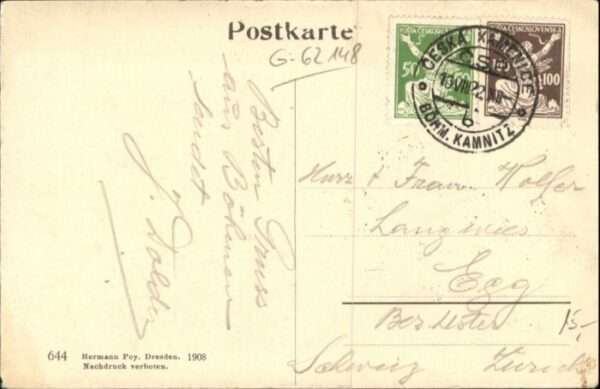 Postkarte
G-62148
POŠTA ČESKOSLOVENSKÁ
50
POŠTA ČESKOSLOVENSKÁ
100
ČESKÁ KAMENICE
ČSP
13.VIII.22.XII
b
BÖHM. KAMNITZ
Besten Gruss
aus Böhmen
sendet
J. Dolder
Herr & Frau Wolfer
Langwies
Egg
Bez Uster
Schweiz Zürich
15,-
644 Hermann Poy, Dresden. 1908
Nachdruck verboten.